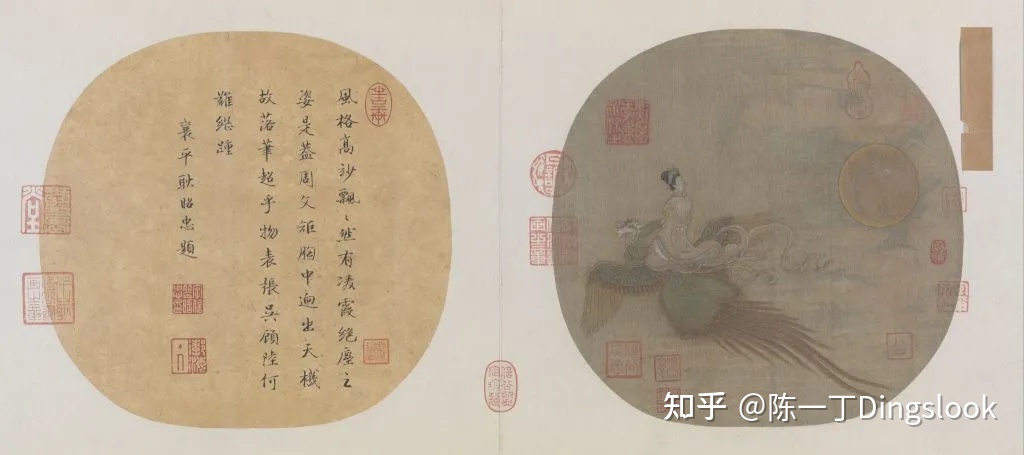 風格高玅飄〻然有凌霞絕塵之
姿是蓋周文矩胸中迥出天機
故落筆超乎物表張吳顧陸何
難繼踵
襄平耿昭忠題
知乎 @陈一丁Dingslook